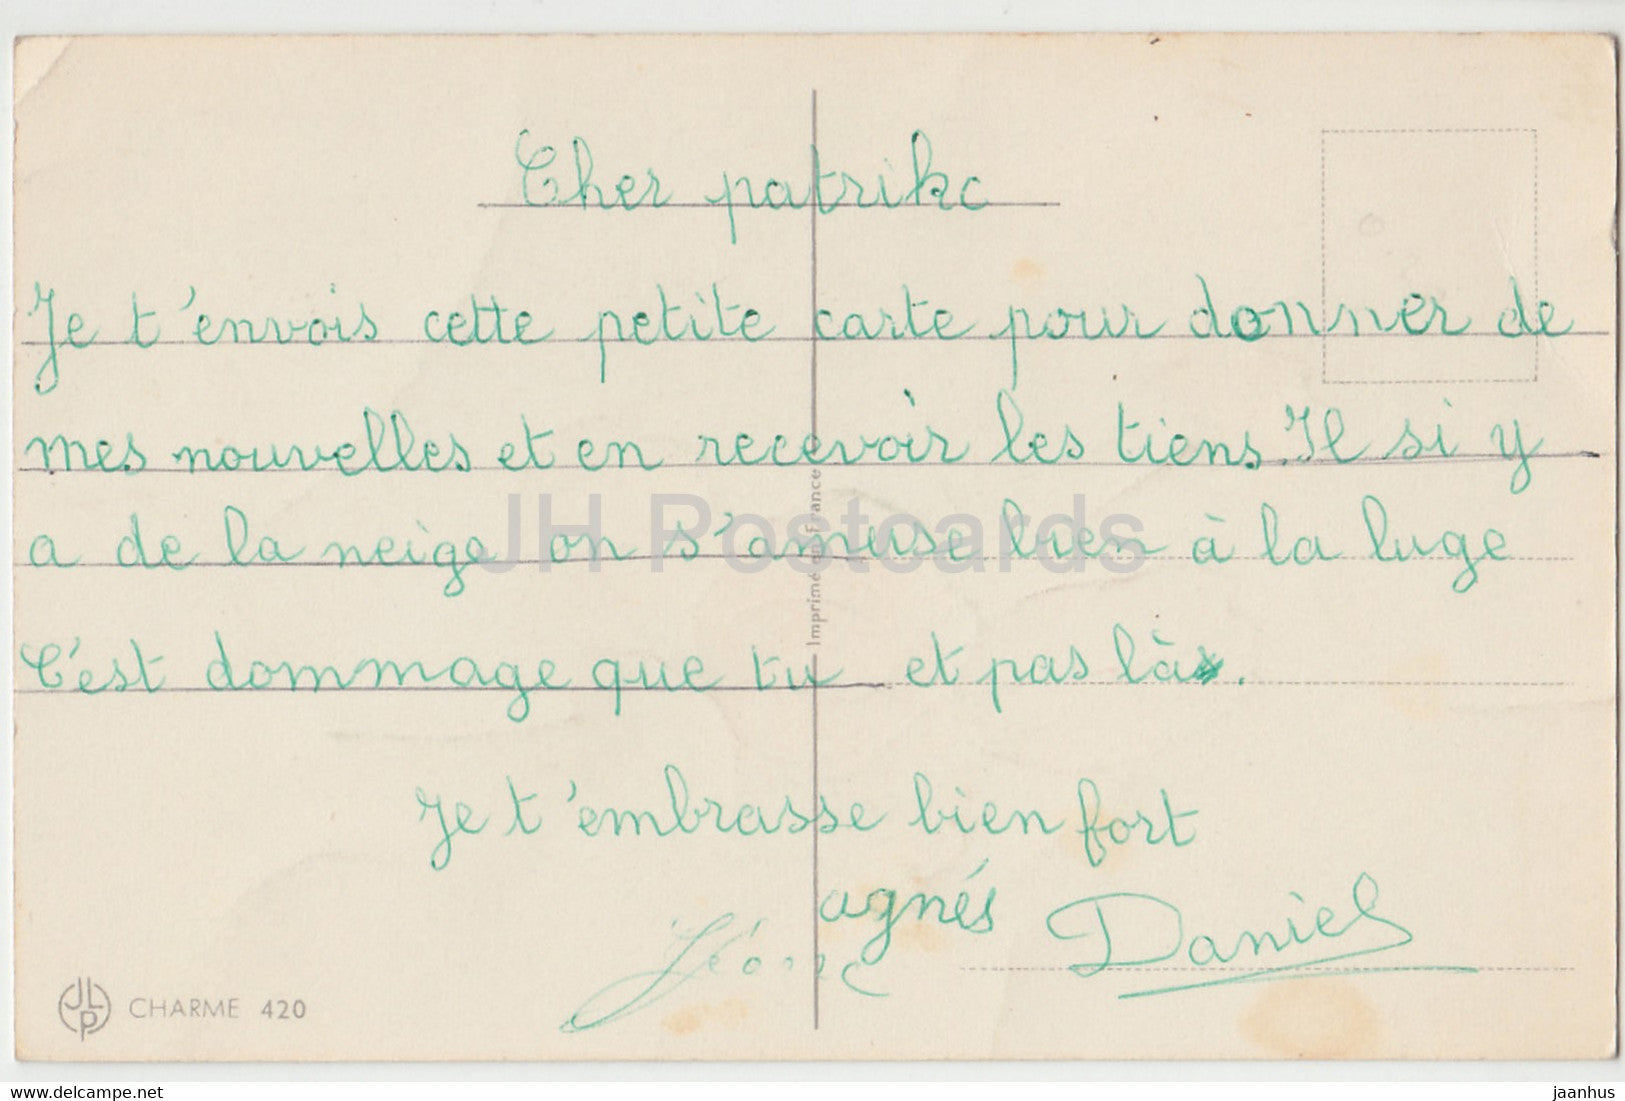 Cher patrikc
Je t'envois cette petite carte pour donner de
mes nouvelles et en recevoir les tiens. Il si y
a de la neige on s'amuse bien à la luge
C'est dommage que tu et pas là.
Je t'embrasse bien fort
agnés
Daniel
Imprimé en France
JLP CHARME 420
JH Postcards
www.delcampe.net
jaanhus